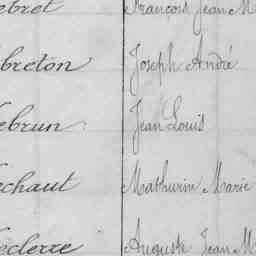 ebret François Jean M
breton Joseph André
ebrun Jean Louis
echaut Mathurin Marie
eclerre Auguste Jean M